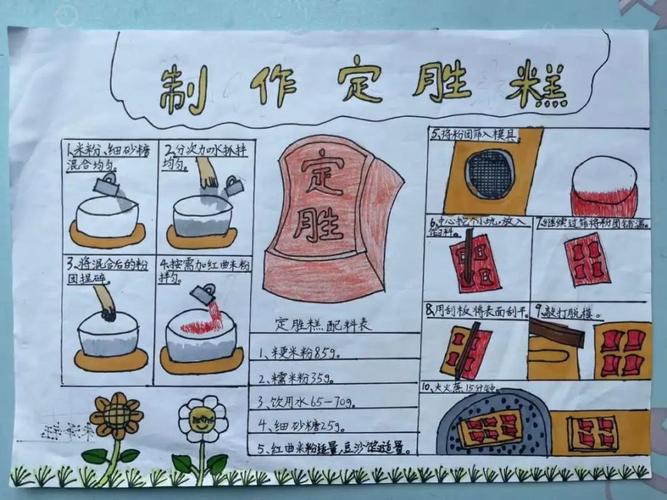 制作定胜糕
1.米粉、细砂糖
混合均匀。
2.分次加水抓拌
均匀。
3.将混合后的粉
团捏碎。
4.按需加红曲米粉
拌匀。
定
胜
定胜糕配料表
1、粳米粉85g。
2、糯米粉35g。
3、饮用水65—70g。
4、细砂糖25g。
5、红曲米粉适量,豆沙馅适量。
5.将粉团筛入模具
6.中心挖个小坑,放入
馅料。
7.继续过筛将粉团铺满。
8.用刮板将表面刮平。
9.敲打脱模。
10.大火蒸15分钟。